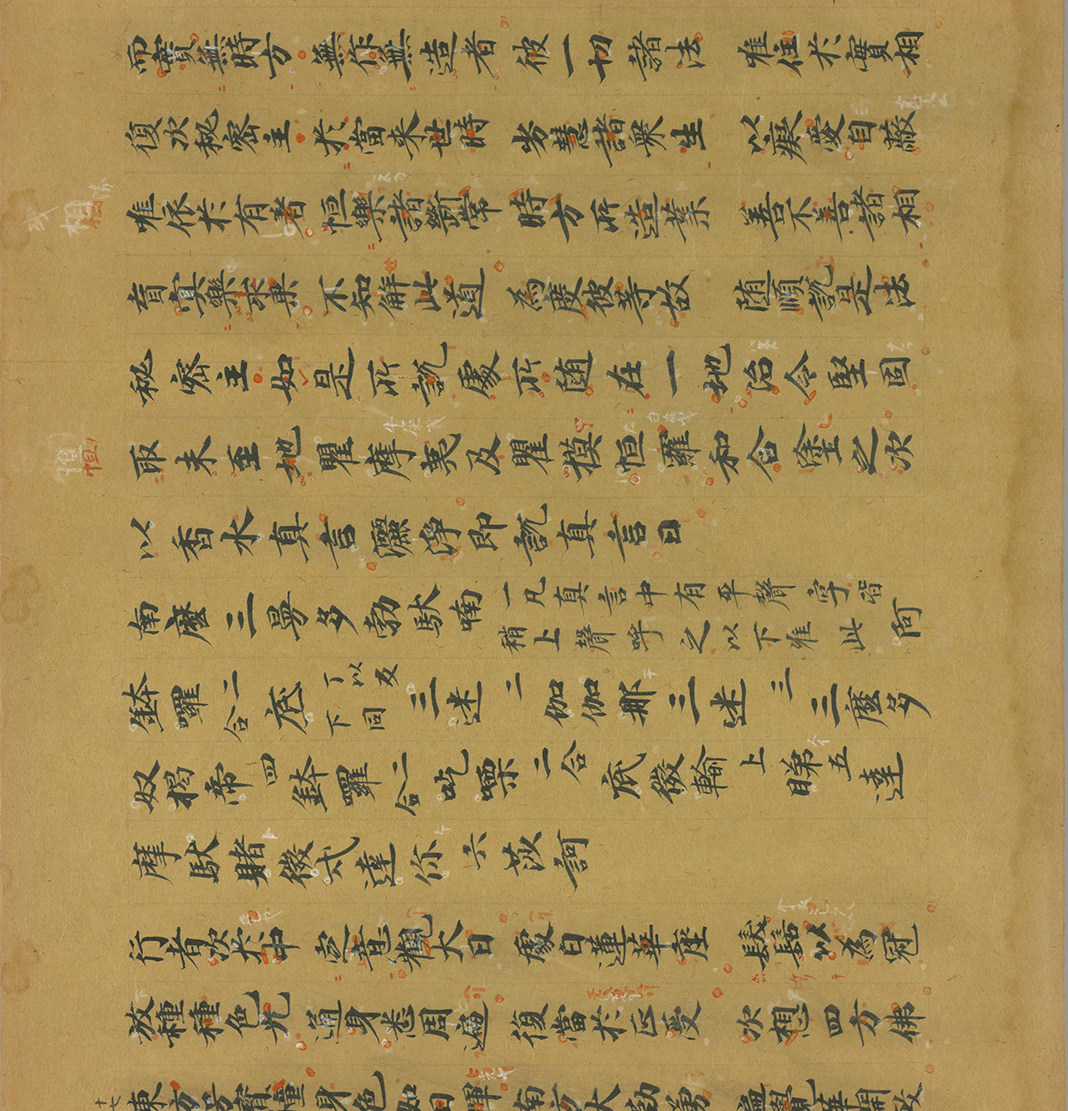 而實無時方　無作無造者　彼一切諸法　唯住於實相
復次秘密主　於當来世時　劣慧諸衆生　以癡愛自蔽
唯依於有著　恒樂諸斷常　時方所造業　善不善諸相
盲冥樂求果　不知解此道　為度彼等故　随順說是法
秘密主如是所說處所随在一地治令堅固
取未至地瞿摩夷及瞿摸恒羅和合塗之次
以香水真言灑淨即說真言曰
南麼三曼多勃馱喃一凡真言中有平聲字皆稍上聲呼之以下准此阿
鉢囉二合底丁以反下同三迷二伽伽那三迷三三麼多
奴揭帝四鉢囉二合吃㗚二合底微輸上睇五達
摩馱睹微戍達你六莎訶
行者次於中　定意觀大日　處白蓮華座　髮髻以為冠
放種種色光　通身悉周遍　復當於正受　次想四方佛
東方号寶幢　身色如日暉　南方大勤勇　遍覺華開敷